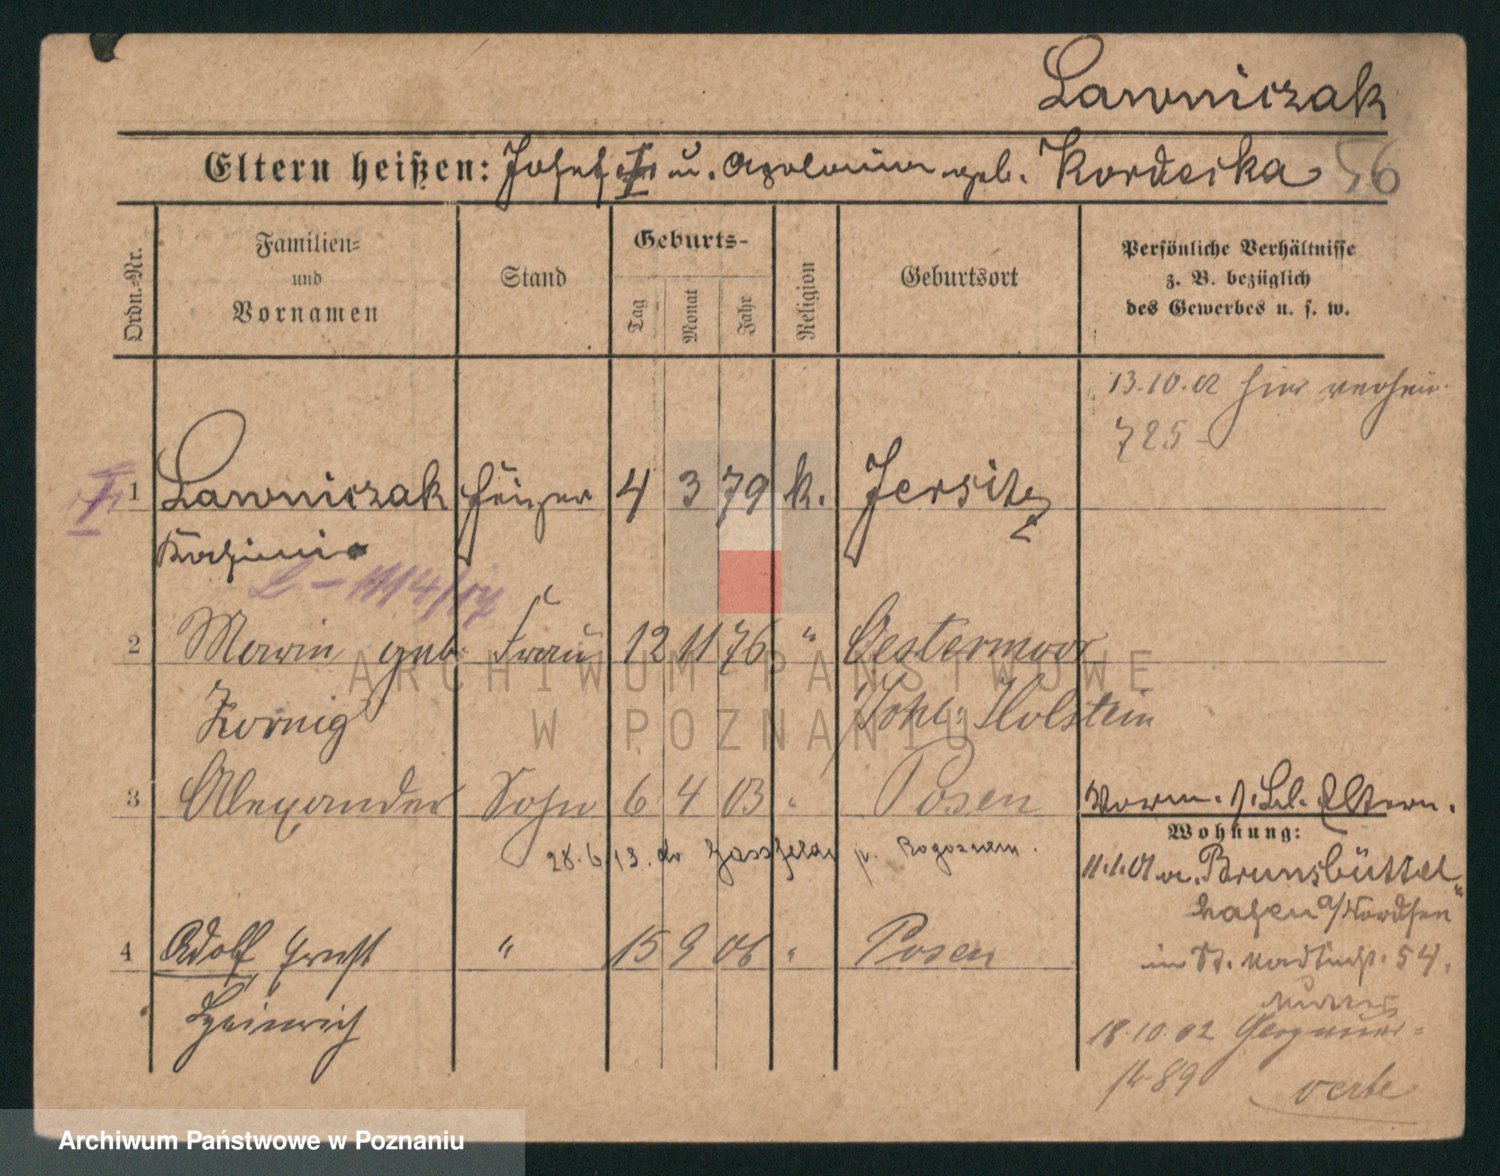 Lawniczak
Eltern heißen: Josef u. Apolonia geb. Kordecka 56
Ordn.-Nr.
Familien- und Vornamen
Stand
Geburts-
Tag
Monat
Jahr
Religion
Geburtsort
Persönliche Verhältnisse
z. B. bezüglich
des Gewerbes u. s. w.
13.10.02 hier verheir.
725
1 Lawniczak Heizer 4 3 79 k. Jersitz
Kasimir
L - 1114/07
2 Marie geb. Frau 12 11 76 " Oestermoor
Kornig Holstein
3 Alexander Sohn 6 4 03 " Posen
Vorm. s. Bl. Eltern.
28.6.13. p. Rogasen.
Wohnung:
11.1.01 v. Brunsbüttel
hafen a/Nordsee
4 Adolf Ernst " 15 9 06 " Posen
in St. 54.
Heinrich
18.10.02
89
ARCHIWUM PAŃSTWOWE
W POZNANIU
Archiwum Państwowe w Poznaniu